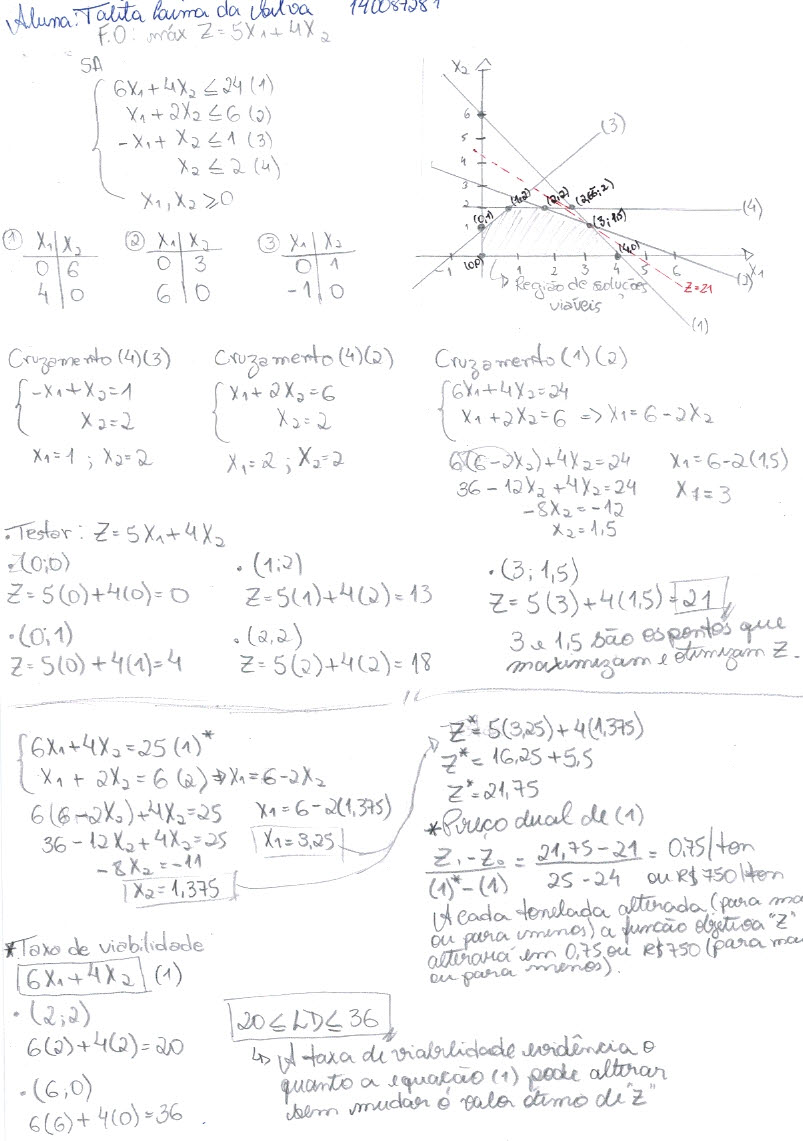 Aluna: Talita Lauma da Salva 14008728
F.O: máx Z=5X1+4X2
SA
6X1+4X2≤24 (1)
X1+2X2≤6 (2)
-X1+X2≤1 (3)
X2≤2 (4)
X1,X2≥0
① X1|X2
0|6
4|0
② X1|X2
0|3
6|0
③ X1|X2
0|1
-1|0
X2
6
5
4
3
2
1
-1 1 2 3 4 5 6 X1
(0,0)
(0,1)
(1,2)
(2,2)
(3;1,5)
(4,0)
(3)
(4)
(1)
Z=21
Região de soluções
viáveis
Cruzamento (4)(3)
-X1+X2=1
X2=2
X1=1 ; X2=2
Cruzamento (4)(2)
X1+2X2=6
X2=2
X1=2 ; X2=2
Cruzamento (1)(2)
6X1+4X2=24
X1+2X2=6 => X1=6-2X2
6(6-2X2)+4X2=24
36-12X2+4X2=24
-8X2=-12
X2=1,5
X1=6-2(1,5)
X1=3
.Testar: Z=5X1+4X2
•(0;0)
Z=5(0)+4(0)=0
•(0;1)
Z=5(0)+4(1)=4
•(1;2)
Z=5(1)+4(2)=13
•(2,2)
Z=5(2)+4(2)=18
•(3; 1,5)
Z=5(3)+4(1,5)=21
3 e 1,5 são os pontos que
maximizam e otimizam Z.
6X1+4X2=25 (1)*
X1+2X2=6 (2) => X1=6-2X2
6(6-2X2)+4X2=25
36-12X2+4X2=25
-8X2=-11
X2=1,375
X1=6-2(1,375)
X1=3,25
Z*=5(3,25)+4(1,375)
Z*=16,25+5,5
Z*=21,75
*Preço dual de (1)
Z1-Z0 / (1)*-(1) = 21,75-21 / 25-24 = 0,75/ton
ou R$ 750/ton
A cada tonelada alterada (para ma
ou para menos) a função objetiva "Z"
alterará em 0,75 ou R$750 (para ma
ou para menos).
*Taxa de viabilidade
6X1+4X2 (1)
•(2;2)
6(2)+4(2)=20
•(6,0)
6(6)+4(0)=36
20≤LD≤36
↳ A taxa de viabilidade evidência o
quanto a equação (1) pode alterar
sem mudar o valor ótimo de "Z"